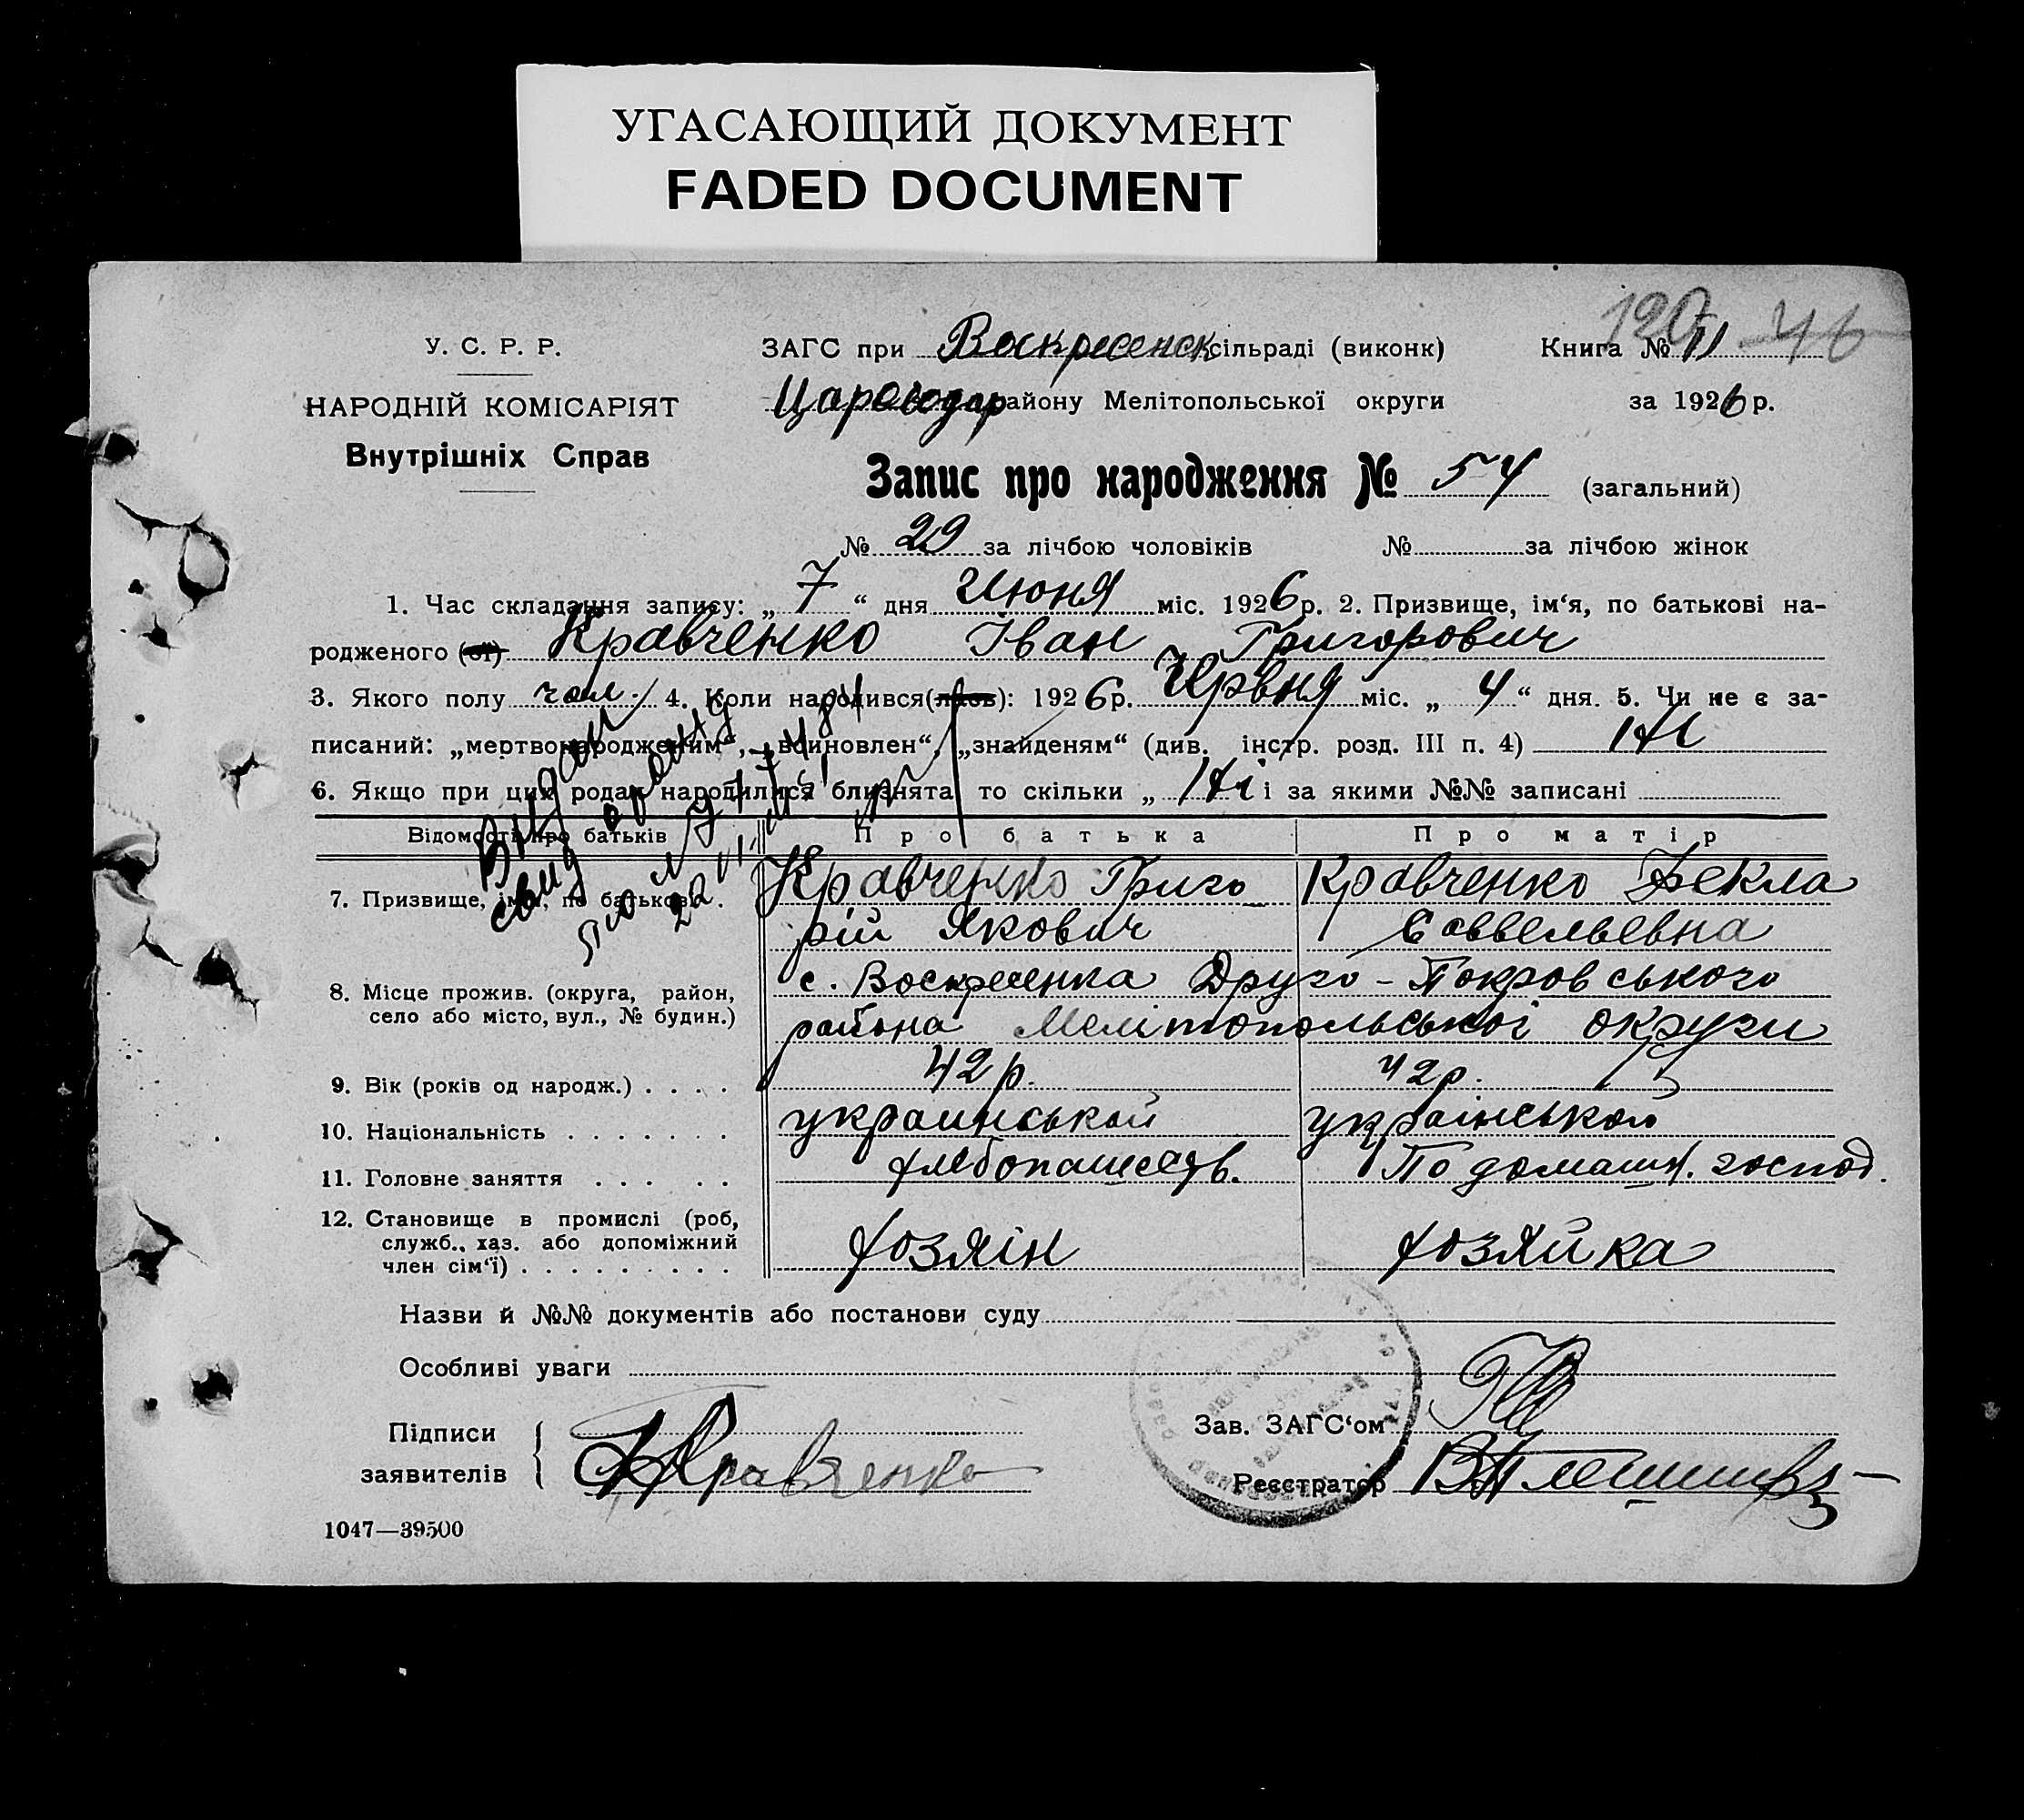 УГАСАЮЩИЙ ДОКУМЕНТ
FADED DOCUMENT
120 46
У. С. Р. Р.
НАРОДНІЙ КОМІСАРІЯТ
Внутрішніх Справ
ЗАГС при Воскресенск сільраді (виконк)
Книга № II
району Мелітопольської округи
за 1926 р.
Запис про народження № 54 (загальний)
№ 29 за лічбою чоловіків № за лічбою жінок
1. Час складання запису: „ 7 “ дня Июня міс. 1926 р. 2. Призвище, ім‘я, по батькові на-
родженого (ої) Кравченко Іван Григорович
3. Якого полу чол. 4. Коли народився(лась): 1926 р. Червня міс. „ 4 “ дня. 5. Чи не є за-
писаний: „мертвонародженим“, „всиновлен“, „знайденям“ (див. інстр. розд. III п. 4) Ні
6. Якщо при цих родах народилися близнята то скільки „ Ні і за якими №№ записані
Відомості про батьків Про батька Про матір
7. Призвище, ім‘я, по батькові . Кравченко Григо Кравченко Фекла
рій Якович Саввельевна
8. Місце прожив. (округа, район, село або місто, вул., № будин.) с. Воскресенка Друго-Покровського
района Мелітопольської округи
9. Вік (років од народж.) . . . . 42 р. 42 р.
10. Національність . . . . . . . украинськой українськой
11. Головне заняття . . . . . хлебопашеств. По домашн. господ.
12. Становище в промислі (роб,
служб., хаз. або допоміжний
член сім‘ї) . . . . . . . . . хозяін хозяйка
Назви й №№ документів або постанови суду
Особливі уваги
Підписи
заявителів Кравченко
Зав. ЗАГС‘ом
Реєстратор
1047—39500